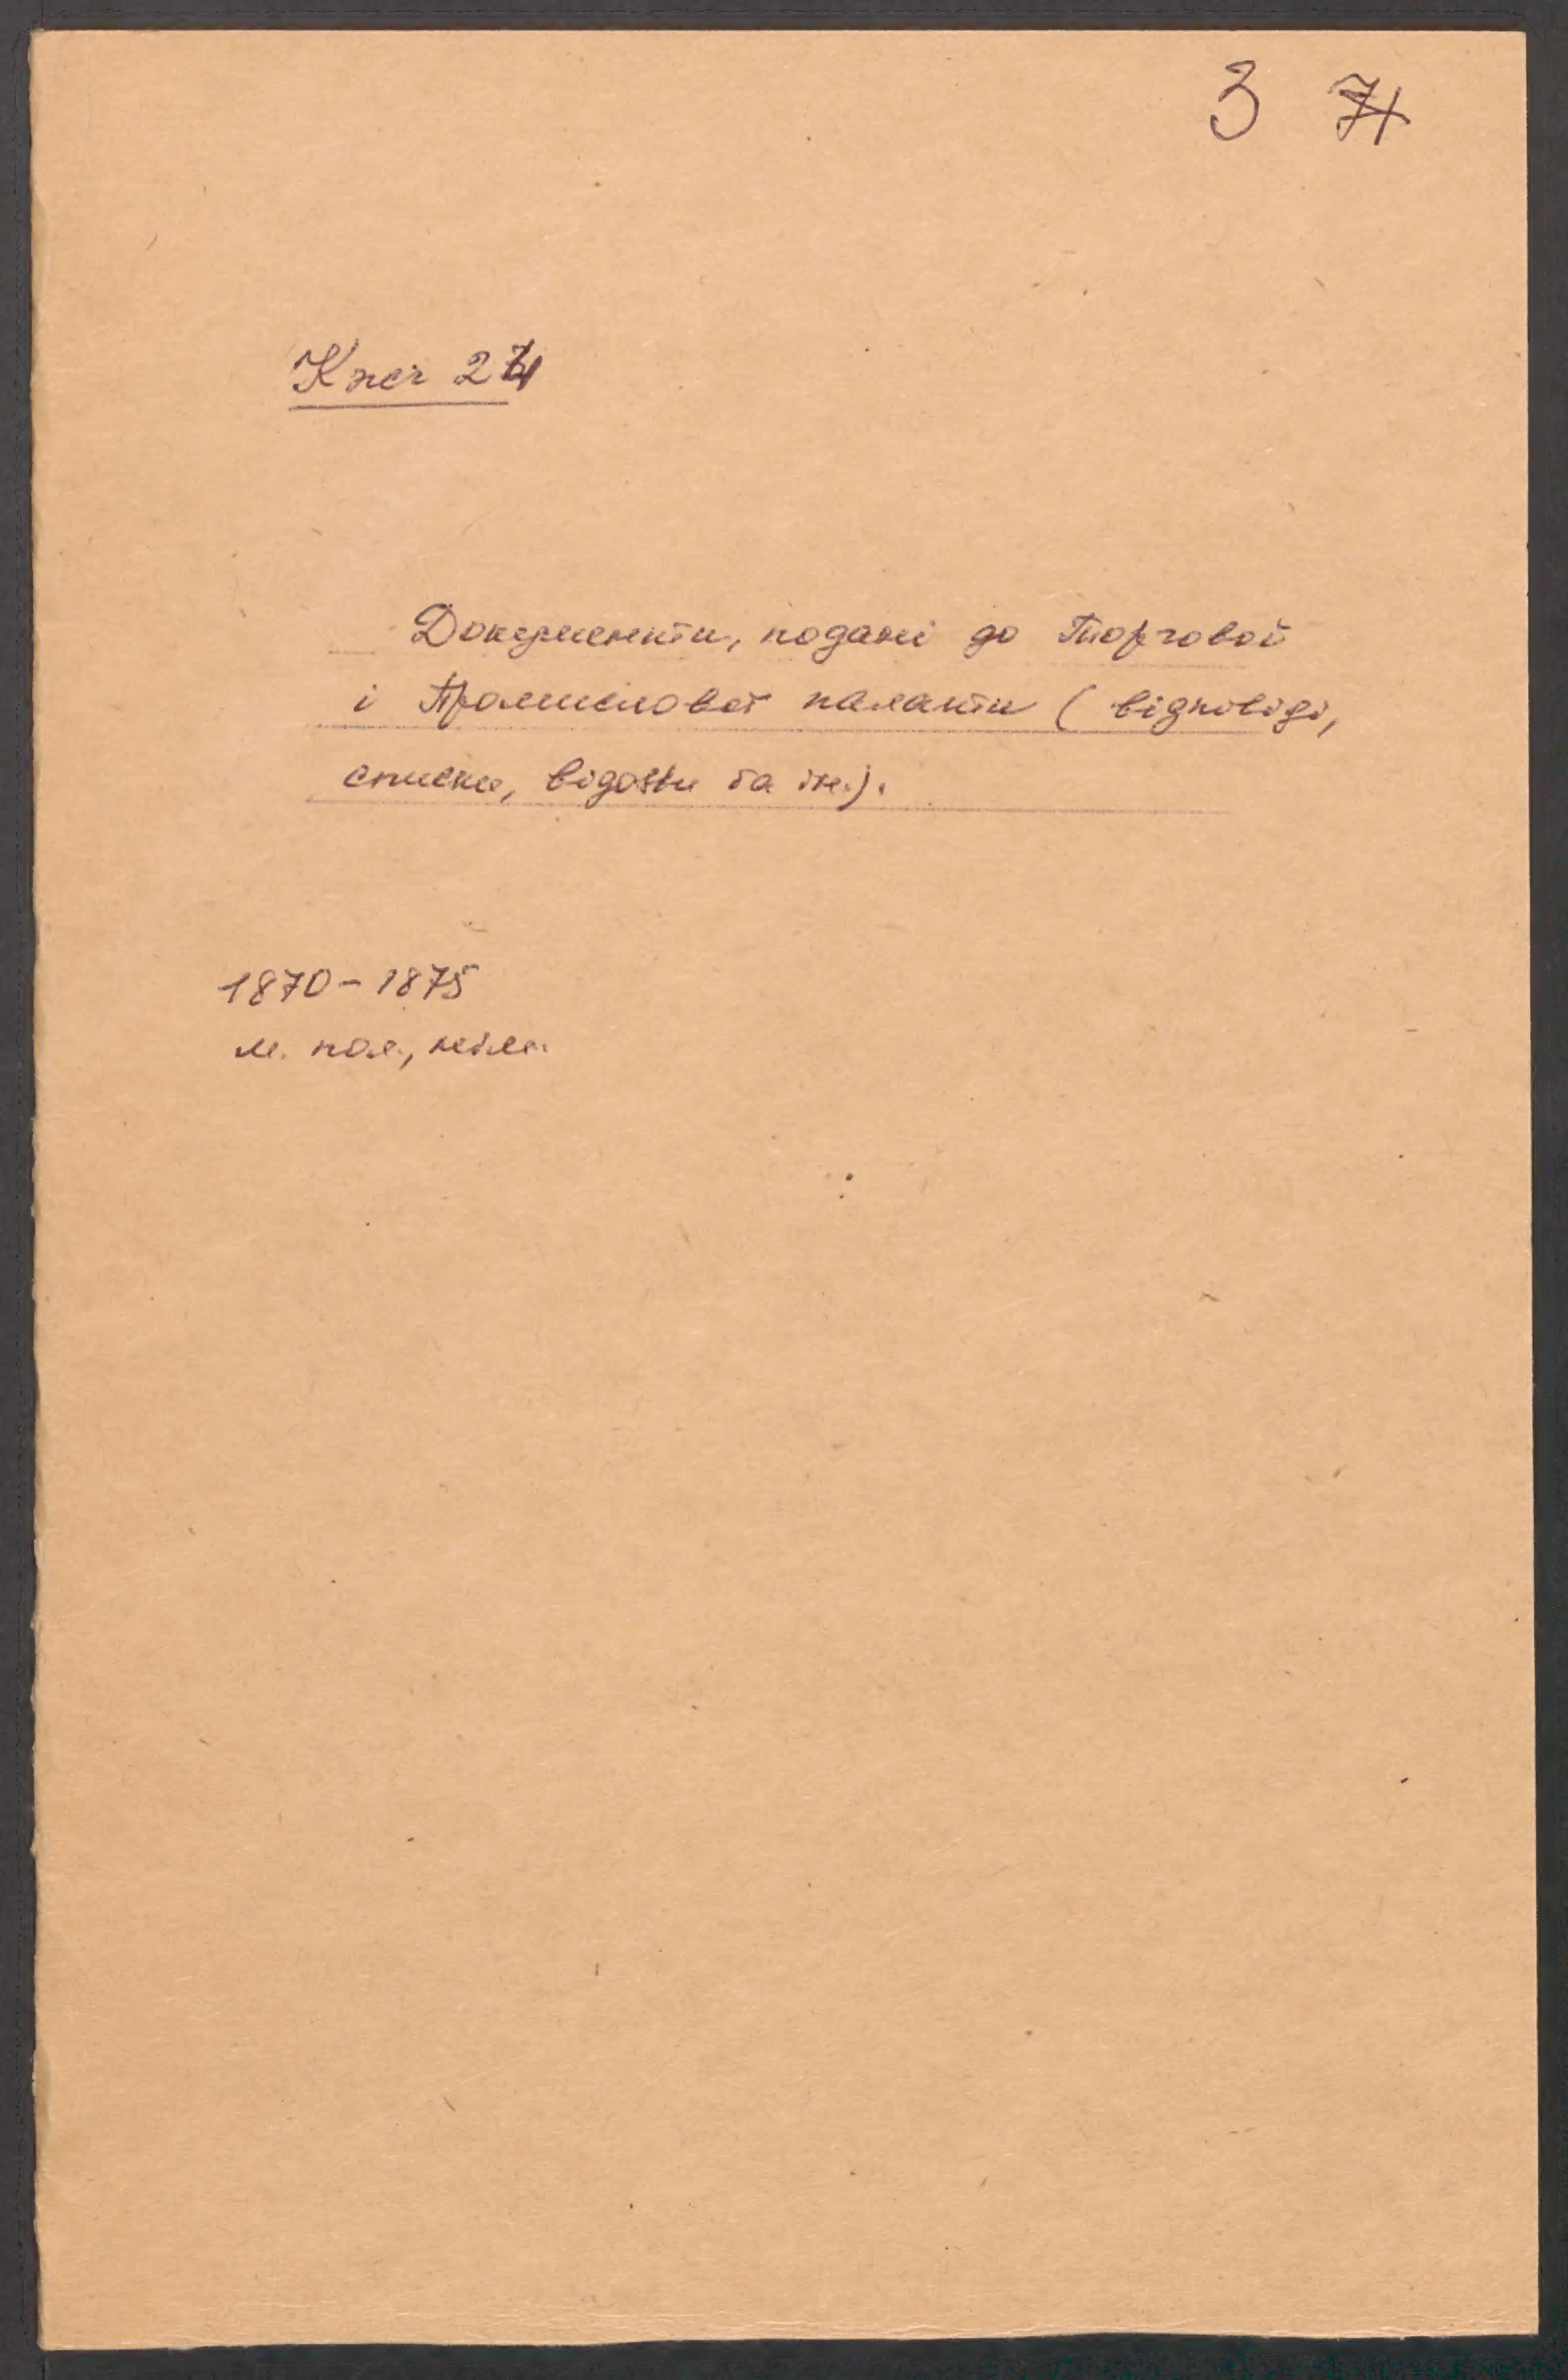 3 7
Документи, подані до Торгової
і Промислової палати (відповіді,
списки, відозви та ін.).
1870-1875
м. пол., нім.